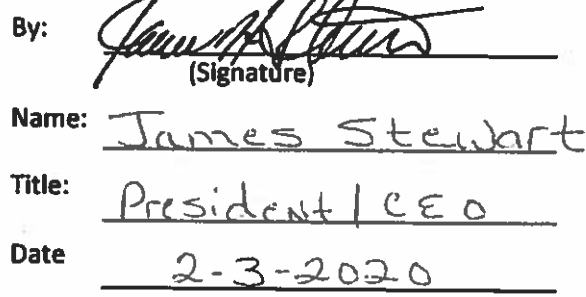 By: James H Stewart
(Signature)
Name: James Stewart
Title: President / CEO
Date 2-3-2020